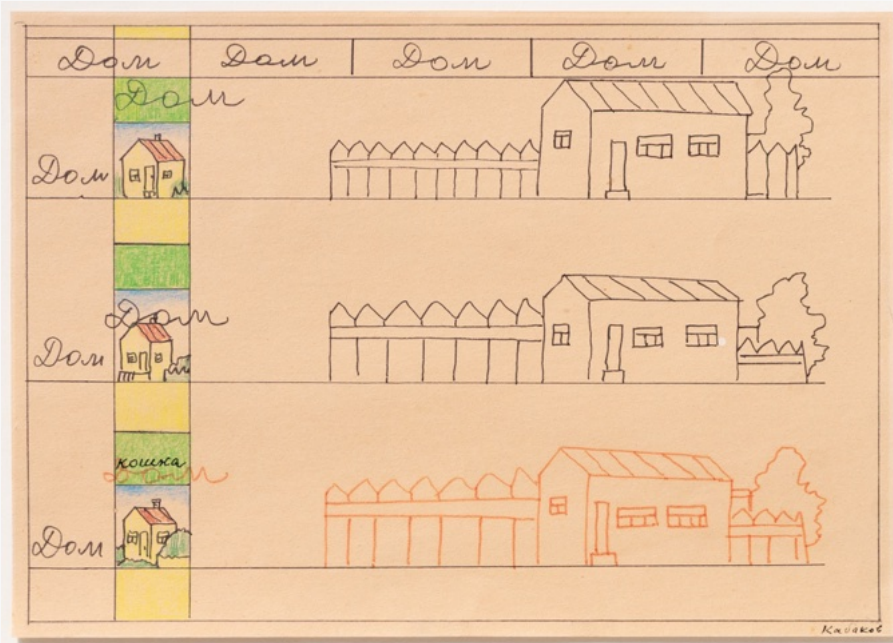 Дом Дом Дом Дом Дом
Дом
Дом
Дом
Дом
кошка
Дом
Дом
Кабаков